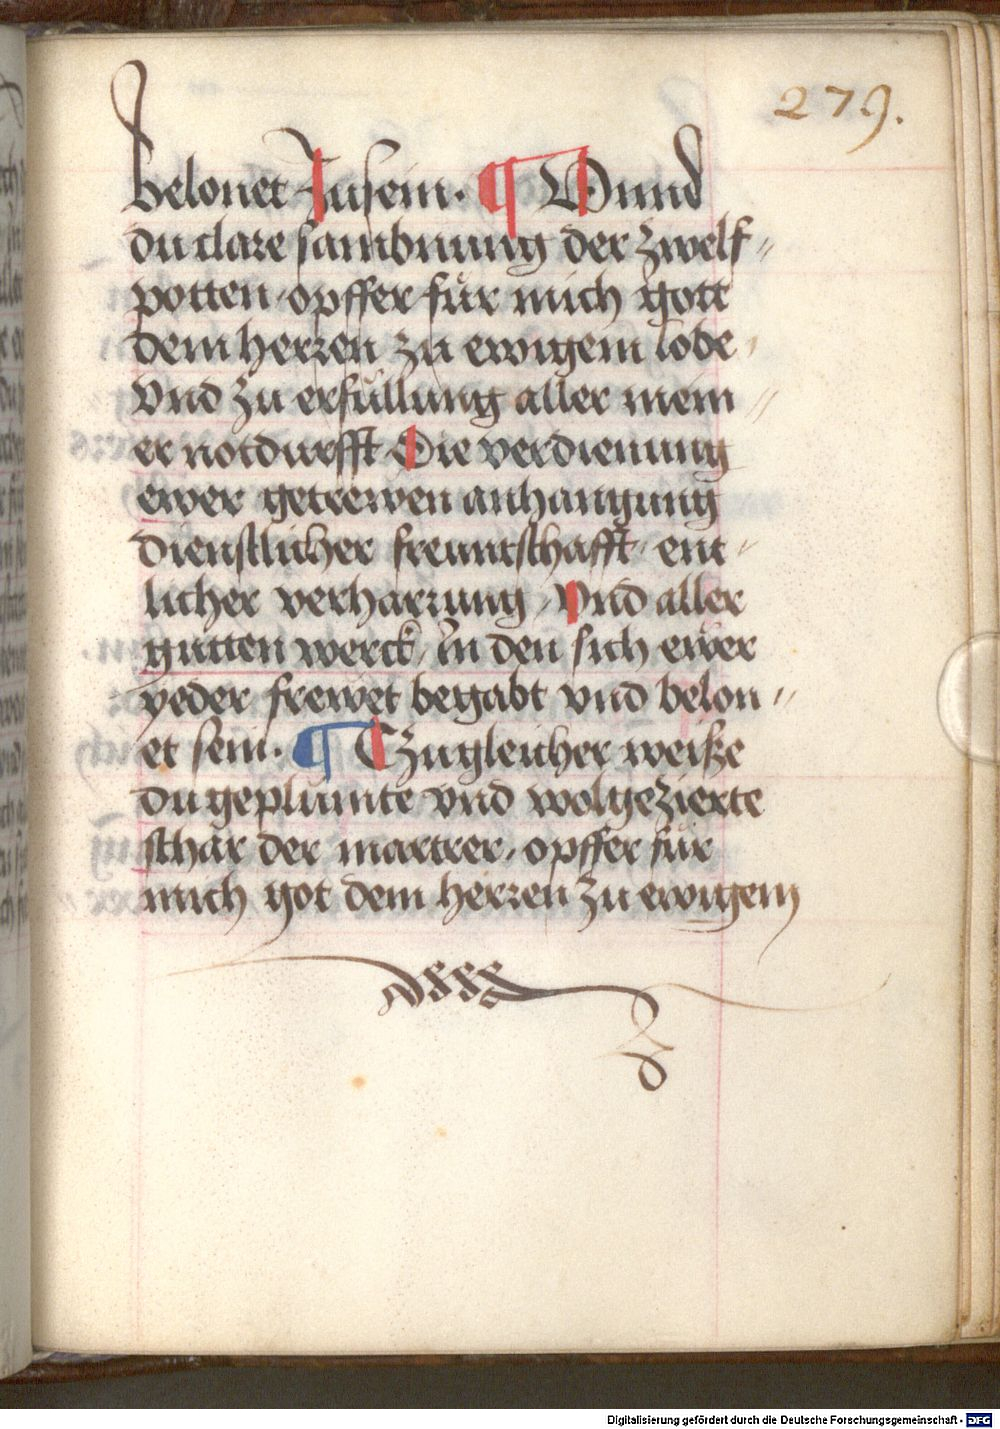 279.
belonet zusein. ¶ Vnnd
du clare sambnung der zwelf //
potten, opffer für mich gott
dem herren zu ewigem lobe /
vnd zu erfüllung aller mein //
er notdurfft Die verdienung
ewer getrewen anhangung
dienstlicher freuntschafft, ent /
licher verharrung, vnd aller
gutten werck, In den sich ewer
yeder frewet begabt vnd belon //
et sein. ¶ Czugleicher weiße
du geplümte vnd wolgezierte
schar der martrer, opffer für
mich got dem herren zu ewigem
Digitalisierung gefördert durch die Deutsche Forschungsgemeinschaft - DFG